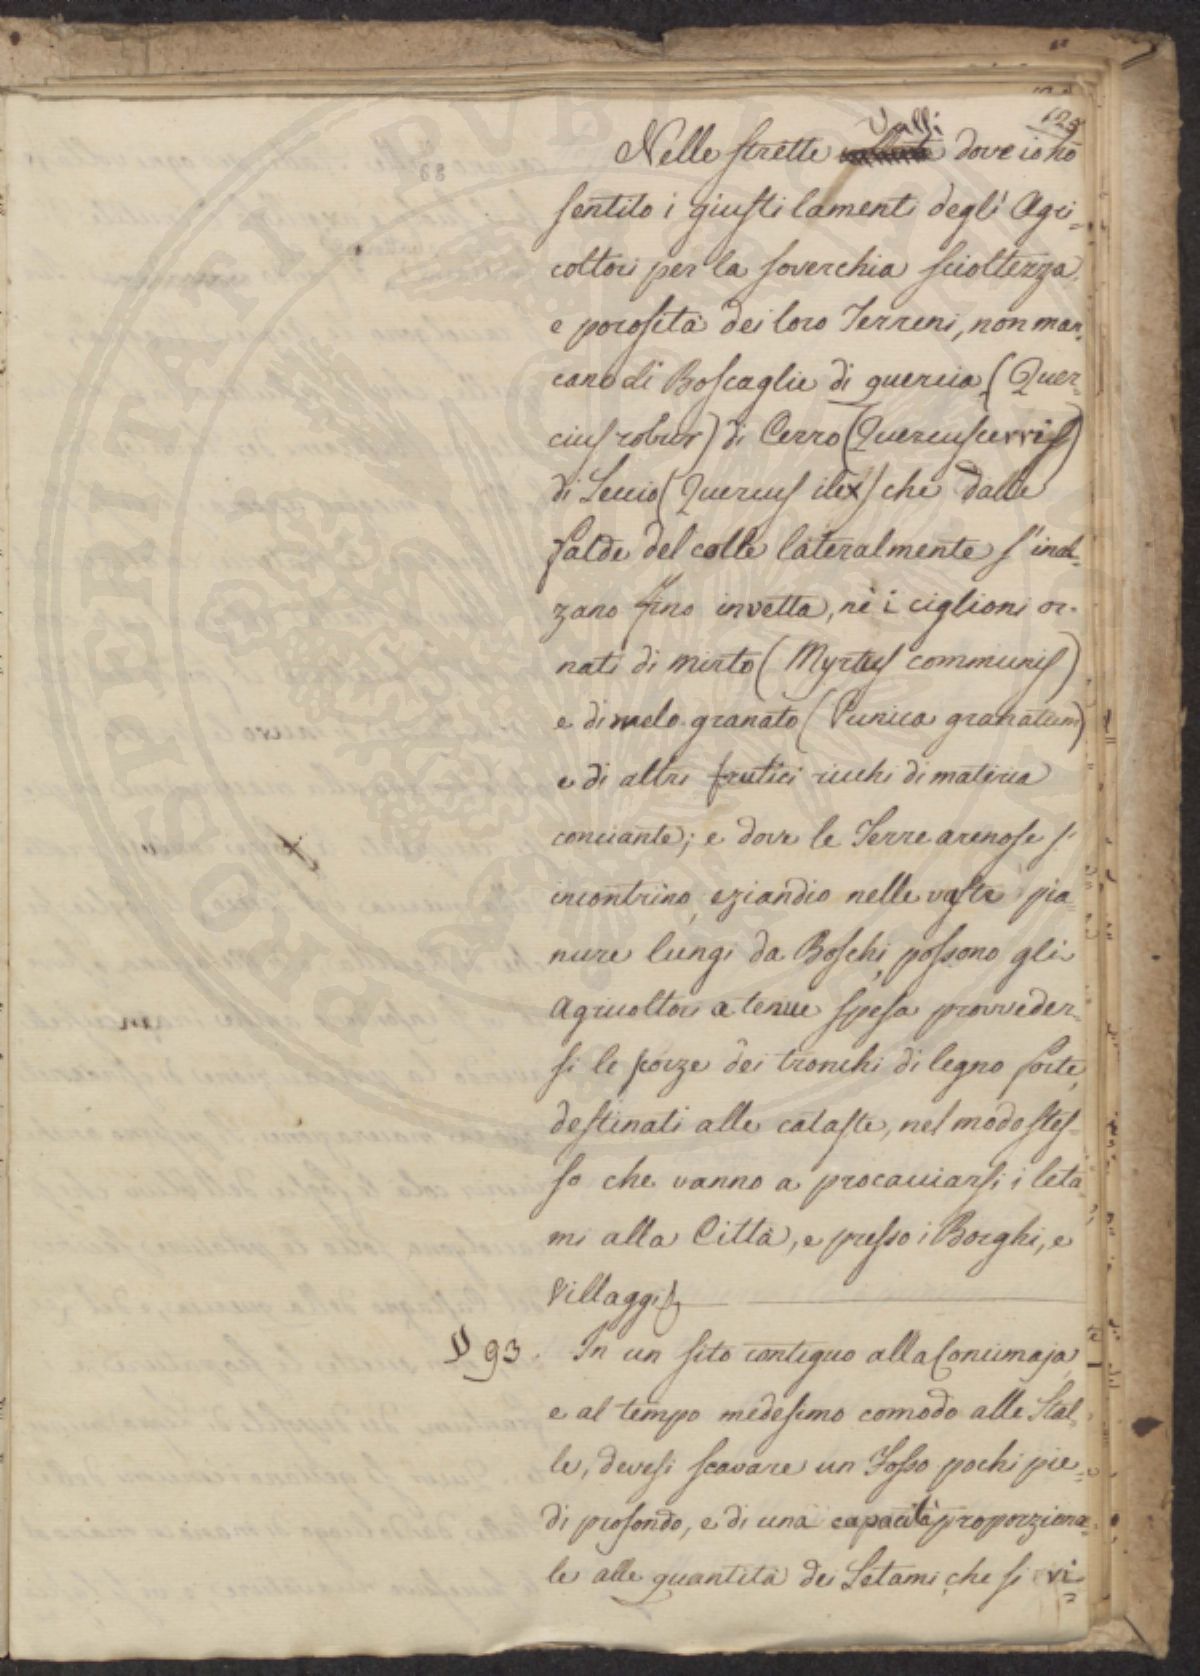 125
Valli
Nelle strette dove io hò
sentito i giusti lamenti degli Agri=
coltori per la soverchia scioltezza,
e porosità dei loro Terreni, non man=
cano di Boscaglie di quercia (Quer=
cius robur) di Cerro (Quercus cerris)
di Leccio (Quercus ilex) che dalle
falde del colle lateralmente s'inal=
zano fino in vetta, nè i ciglioni or=
nati di mirto (Myrtus communis)
e di melo granato (Punica granatum)
e di altri frutici ricchi di materia
conciante; e dove le Terre arenose s'
incontrino, eziandio nelle vaste pia=
nure lungi da Boschi, possono gli
Agricoltori a tenue spesa provveder=
si le scorze dei tronchi di legno forte,
destinati alle cataste, nel modo stes=
so che vanno a procacciarsi i leta
mi alla Città, e presso i Borghi, e
Villaggi
§ 93. In un sito contiguo alla Concimaja,
e al tempo medesimo comodo alle Stal=
le, devesi scavare un Fosso pochi pie=
di profondo, e di una capacità proporziona=
le alle quantità dei Letami, che si vi=
PROSPERITATI PUBLICAE